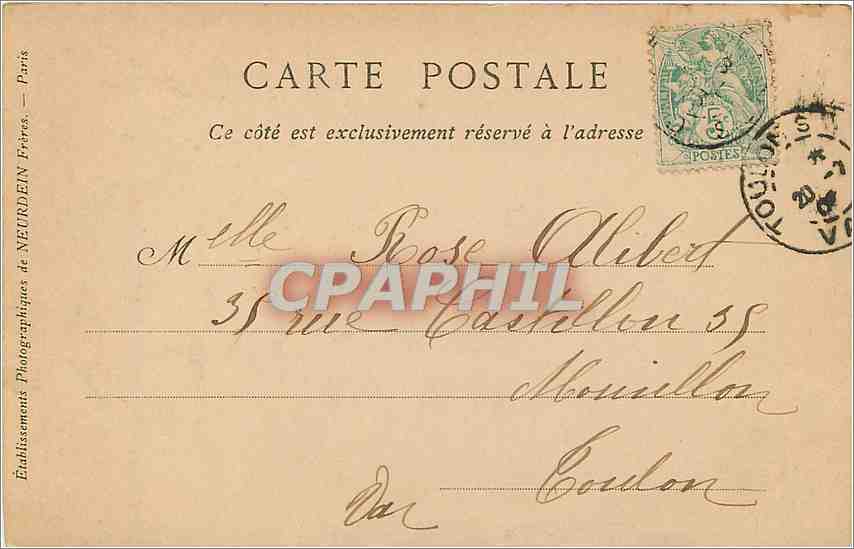 CARTE POSTALE
Ce côté est exclusivement réservé à l'adresse
5
POSTES
TOULON
VAR
Melle Rose Alibert
CPAPHIL
35 rue Castillon 35
Mourillon
Toulon
Var
Établissements Photographiques de NEURDEIN Frères. — Paris